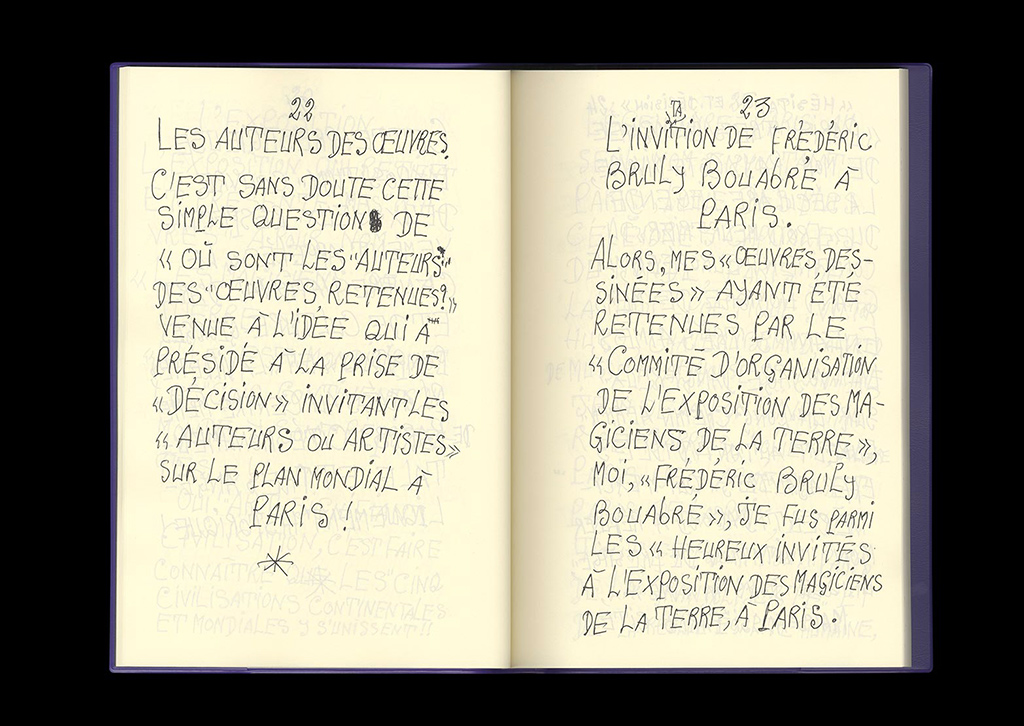 22
LES AUTEURS DES ŒUVRES.
C'EST SANS DOUTE CETTE
SIMPLE QUESTION DE
« OÙ SONT LES "AUTEURS"
DES "ŒUVRES RETENUES?"»
VENUE À L'IDÉE QUI A
PRÉSIDÉ À LA PRISE DE
« DÉCISION » INVITANT LES
« AUTEURS OU ARTISTES »
SUR LE PLAN MONDIAL À
PARIS !
TA 23
L'INVITION DE FRÉDÉRIC
BRULY BOUABRÉ À
PARIS.
ALORS, MES « ŒUVRES DES-
SINÉES » AYANT ÉTÉ
RETENUES PAR LE
« COMMITÉ D'ORGANISATION
DE L'EXPOSITION DES MA-
GICIENS DE LA TERRE »,
MOI, « FRÉDÉRIC BRULY
BOUABRÉ », JE FUS PARMI
LES « HEUREUX INVITÉS
À L'EXPOSITION DES MAGICIENS
DE LA TERRE, À PARIS.